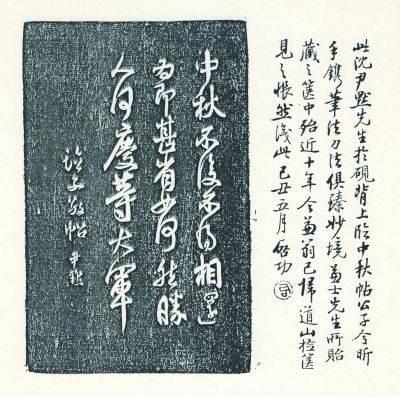 此沈尹默先生於硯背上臨中秋帖公子令昕
手鐫筆法刀法俱臻妙境士先生所貽
藏之篋中殆近十年今翁已歸道山檢篋
見之悵然識此己丑五月启功
中秋不復不得相還
為即甚省如何然勝
人何慶等大軍
臨子敬帖 尹默